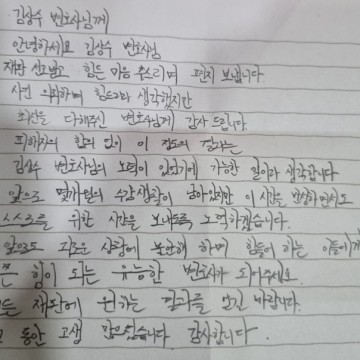 김상수 변호사님께
안녕하세요 김상수 변호사님
재판 선고받고 힘든 마음 추스리며 편지 보냅니다
사건 의뢰하며 힘드리라 생각했지만
최선을 다해주신 변호사님께 감사 드립니다.
피해자의 합의 없이 이 정도의 결과는
김상수 변호사님의 노력이 있었기에 가능한 일이라 생각합니다
앞으로 몇개월의 수감생활이 남아있지만 이 시간을 반성하면서도
스스로를 위한 시간을 보내도록 노력하겠습니다.
앞으로도 괴로운 상황에 하며 힘들어 하는 이들에게
큰 힘이 되는 유능한 변호사가 되어주세요.
모든 재판에 원하는 결과를 얻긴 바랍니다.
그 동안 고생 많으셨습니다. 감사합니다.